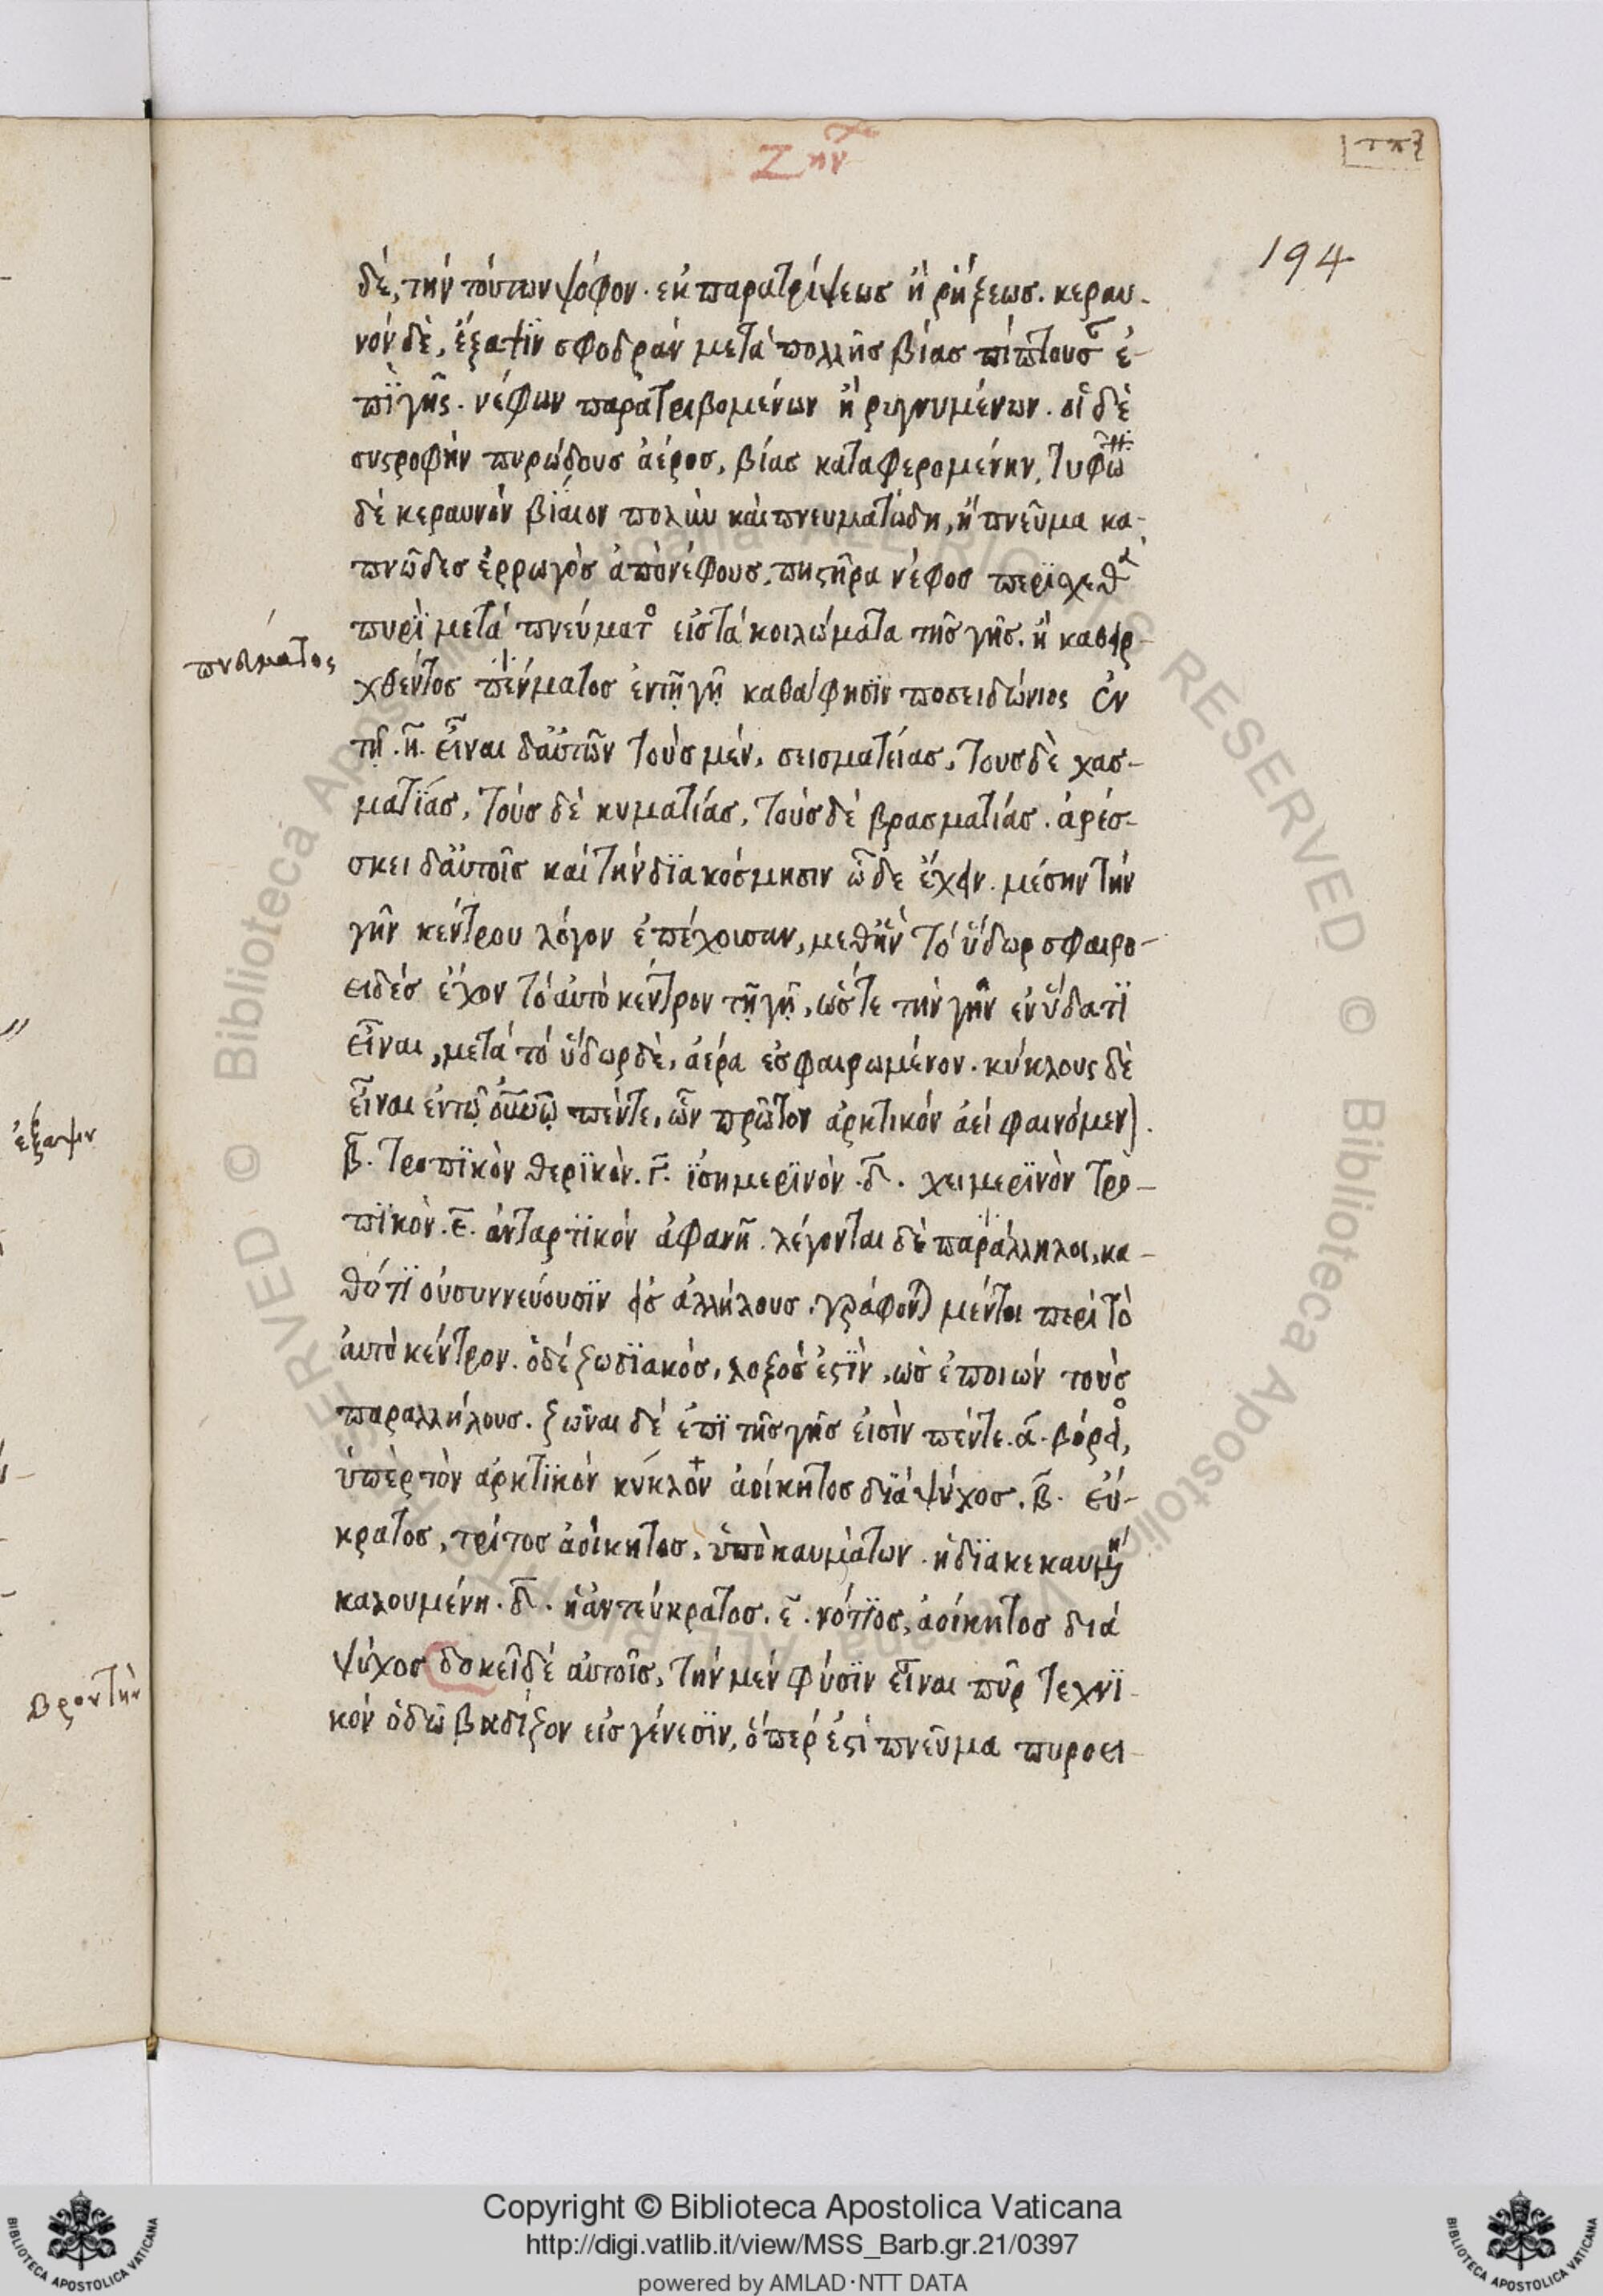 Ζην
194
δέ, τήν τούτων ψόφον· ἐκ παρατρίψεως ἢ ρήξεως. κεραυ-
νόν δὲ, ἔξαψϊν σφοδράν μετὰ πολλῆς βίας πίπτουσ ἐ-
πϊ γῆς. νέφων παρατριβομένων ἢ ρηγνυμένων. οἱ δὲ
συστροφήν πυρώδους ἀέρος, βίας καταφερομένην, τυφῶ
δέ κεραυνόν βίαιον πολὺν καὶ πνευματώδη, ἢ πνεῦμα κα-
πνῶδες ἐρρωγὸς ἀπὸ νέφους, πηστῆρα νέφος περϊσχεθ
πυρὶ μετὰ πνεύματ εἰς τὰ κοιλώματα τῆς γῆς. ἢ καθειρ-
πνεύματος
χθέντος πένματος ἐν τῇ γῇ καθά φησϊν ποσειδώνιος ἐν
τῇ ῆ. εἶναι δ' αὐτῶν τοὺς μέν, σεισματείας, τους δὲ χασ-
ματϊάς, τοὺς δὲ κυματίάς, τοὺς δὲ βρασματίάς. ἀρέσ-
σκει δ' αὐτοῖς καί τήν δϊακόσμησιν ὧδε ἔχειν. μέσην τήν
γῆν κέντρου λόγον ἐπέχουσαν, μεθ' ἣν τὸ ὕδωρ σφαιρο-
ειδές ἔχον τὸ αὐτὸ κέντρον τῇ γῇ, ὥστε τὴν γῆν ἐν ὕδατϊ
εἶναι, μετὰ τό ὕδωρ δὲ, ἀέρα ἐσφαιρωμένον. κύκλους δὲ
εἶναι ἐν τῷ οὐνῷ πέντε, ὧν πρῶτον ἀρκτικόν ἀεί φαινόμεν.
β. τροπϊκὸν θερϊκὸν. γ. ἰσημερϊνόν. δ. χειμερϊνὸν τρο-
πϊκὸν. ε. ἀνταρτϊκόν ἀφανῆ. λέγονται δὲ παράλληλοι, κα-
θότϊ οὐ συννεύουσϊν εἰς ἀλλήλους. γράφονται μέντοι περὶ τὸ
αὐτὸ κέντρον. ὁ δέ ζωδϊακός, λοξός ἐστϊν, ὡς ἐποιών τοὺς
παραλλήλους. ζῶναι δέ ἐπϊ τῆς γῆς εἰσὶν πέντε. α. βόρει,
ὑπὲρ τὸν ἀρκτϊκόν κύκλον ἀοίκητος δϊὰ ψύχος. β. εὔ-
κρατος, τρίτος ἀοίκητος, ὑπὸ καυμάτων. ἡ δϊακεκαυμένη
καλουμένη. δ. ἡ ἀντεύκρατος. ε. νότϊος, ἀοίκητος διά
ψύχος δοκεῖ δέ αὐτοῖς, τήν μέν φύσϊν εἶναι πῦρ τεχνϊ-
κόν ὁδῷ βαδίζον εἰς γένεσϊν, ὅπερ ἐστί πνεῦμα πυροει-
ἔξαψιν
βροντὴν
Copyright © Biblioteca Apostolica Vaticana
http://digi.vatlib.it/view/MSS_Barb.gr.21/0397
powered by AMLAD·NTT DATA
BIBLIOTECA APOSTOLICA VATICANA
BIBLIOTECA APOSTOLICA VATICANA